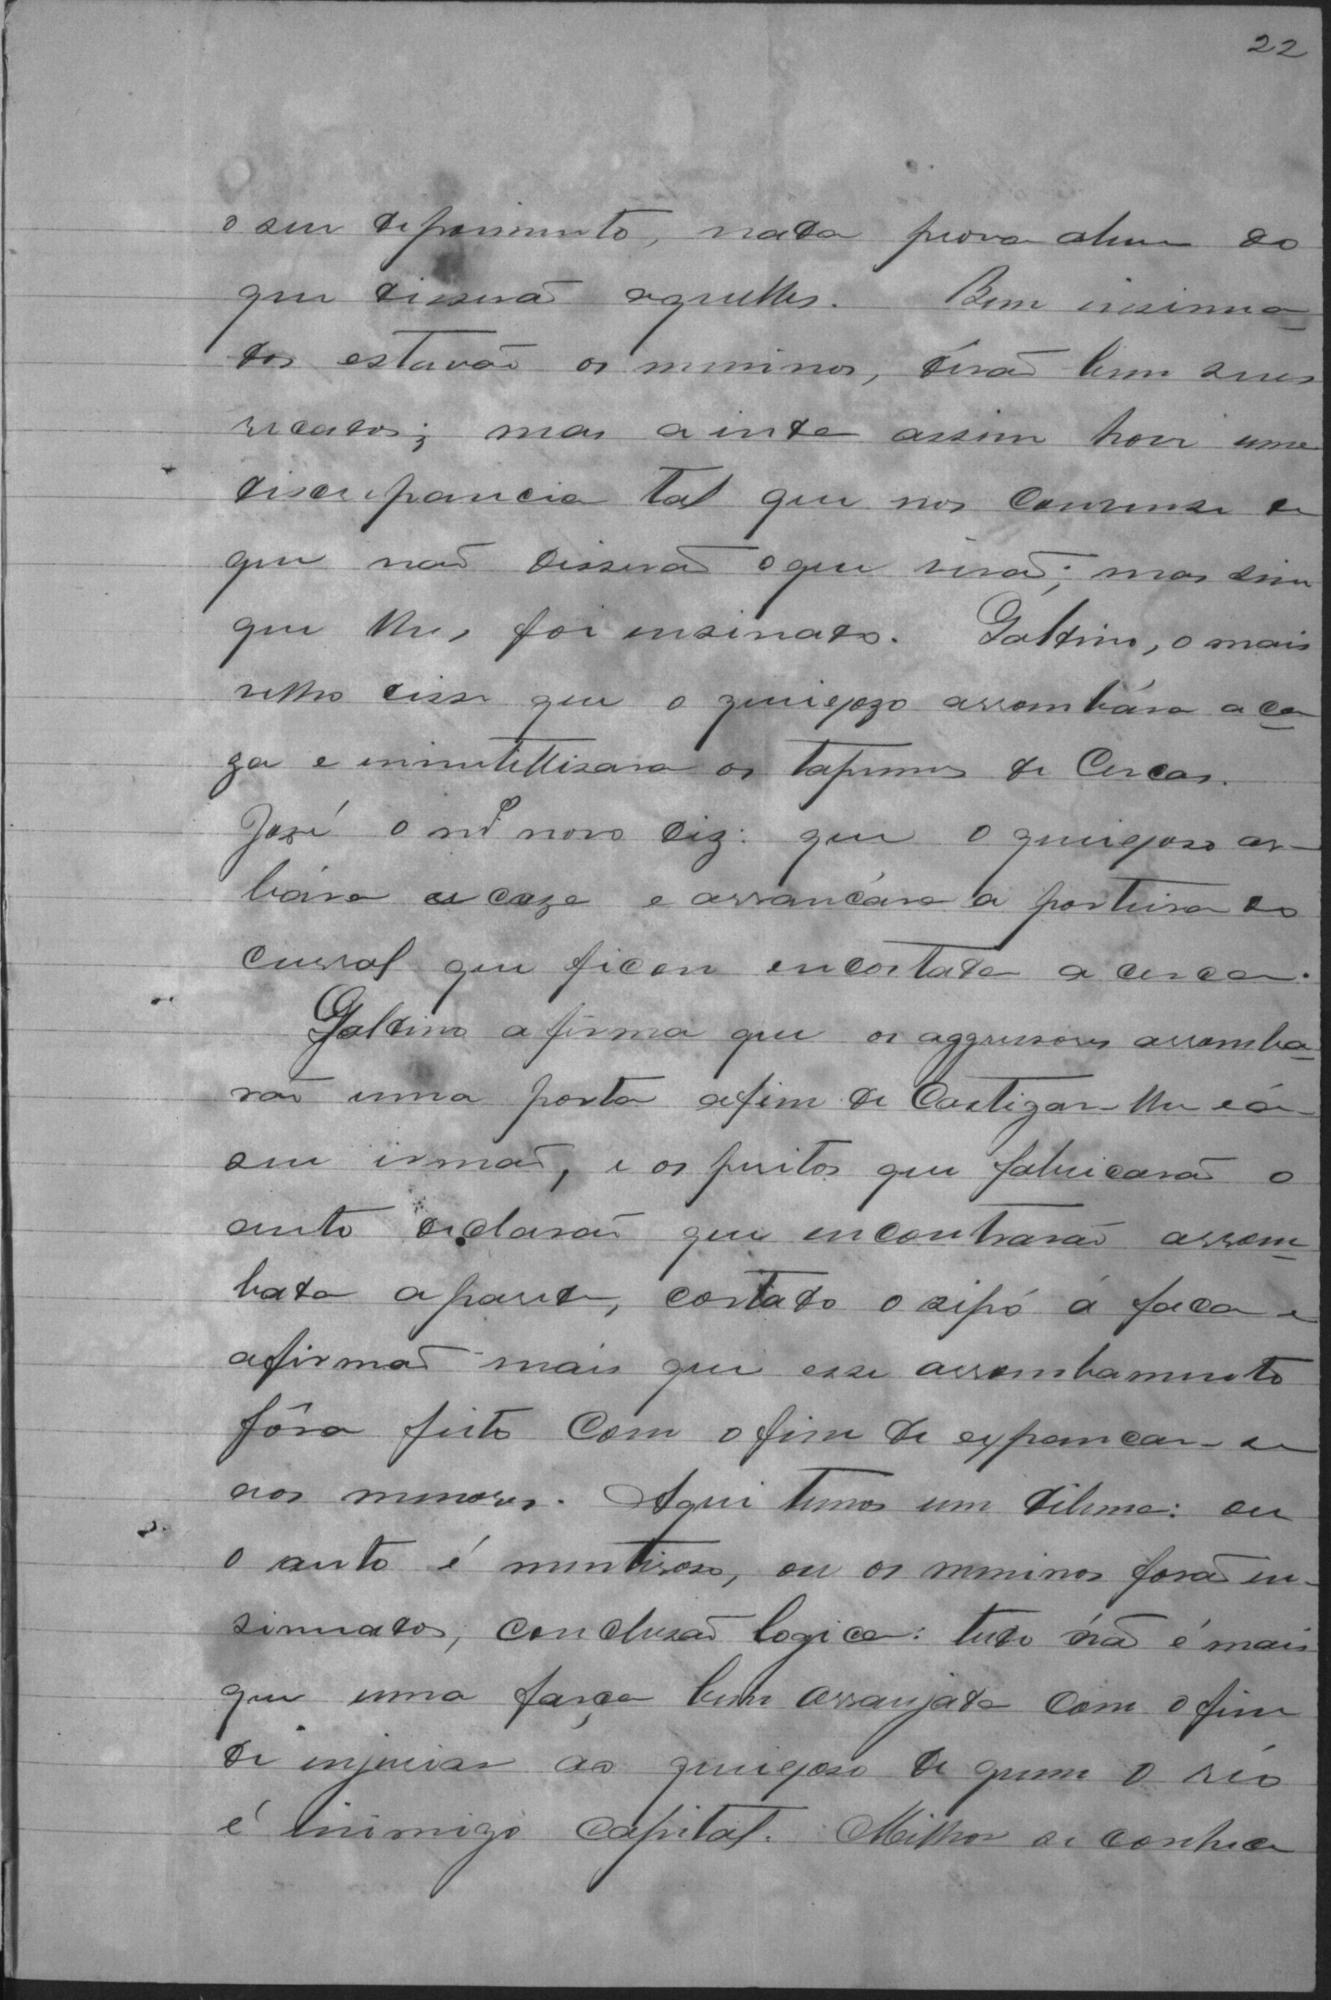 22
o seu depoimento, nada prova alem do
que disserão aquelles. Bem insinua-
dos estavão os meninos, derão bem seus
recados; mas ainda assim houve uma
discrepancia tal que nos convense de
que não disserão o que virão; mas sim
que lhes foi ensinado. Galdino, o mais
velho disse que o queixozo arrombára a ca-
za e innutillisara os tapumes de Cercas.
José o ms novo diz: que o queixoso ar-
bára a caza e arrancára a porteira do
curral que ficou encostada a cerca.
Galdino afirma que os aggressores arromba-
rão uma porta afim de Castigar-lhe e á
seu irmão, e os peritos que fabricarão o
auto declarão que encontrarão arrom-
bada a parede, cortado o sipó á faca e
afirmão mais que esse arrombamento
fôra feito Com o fim de expancar-se
aos menores. Aqui temos um dilema: ou
o auto é mentiroso, ou os meninos forão in-
sinuados, conclusão logica: tudo não é mais
que uma farça bem arranjada com o fim
de injuriar ao queixoso de quem o réo
é inimigo capital. Milhor se conhece